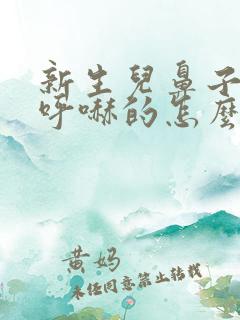 新生兒鼻子
呼嚇的怎麼
黄妈
未经同意禁止转载